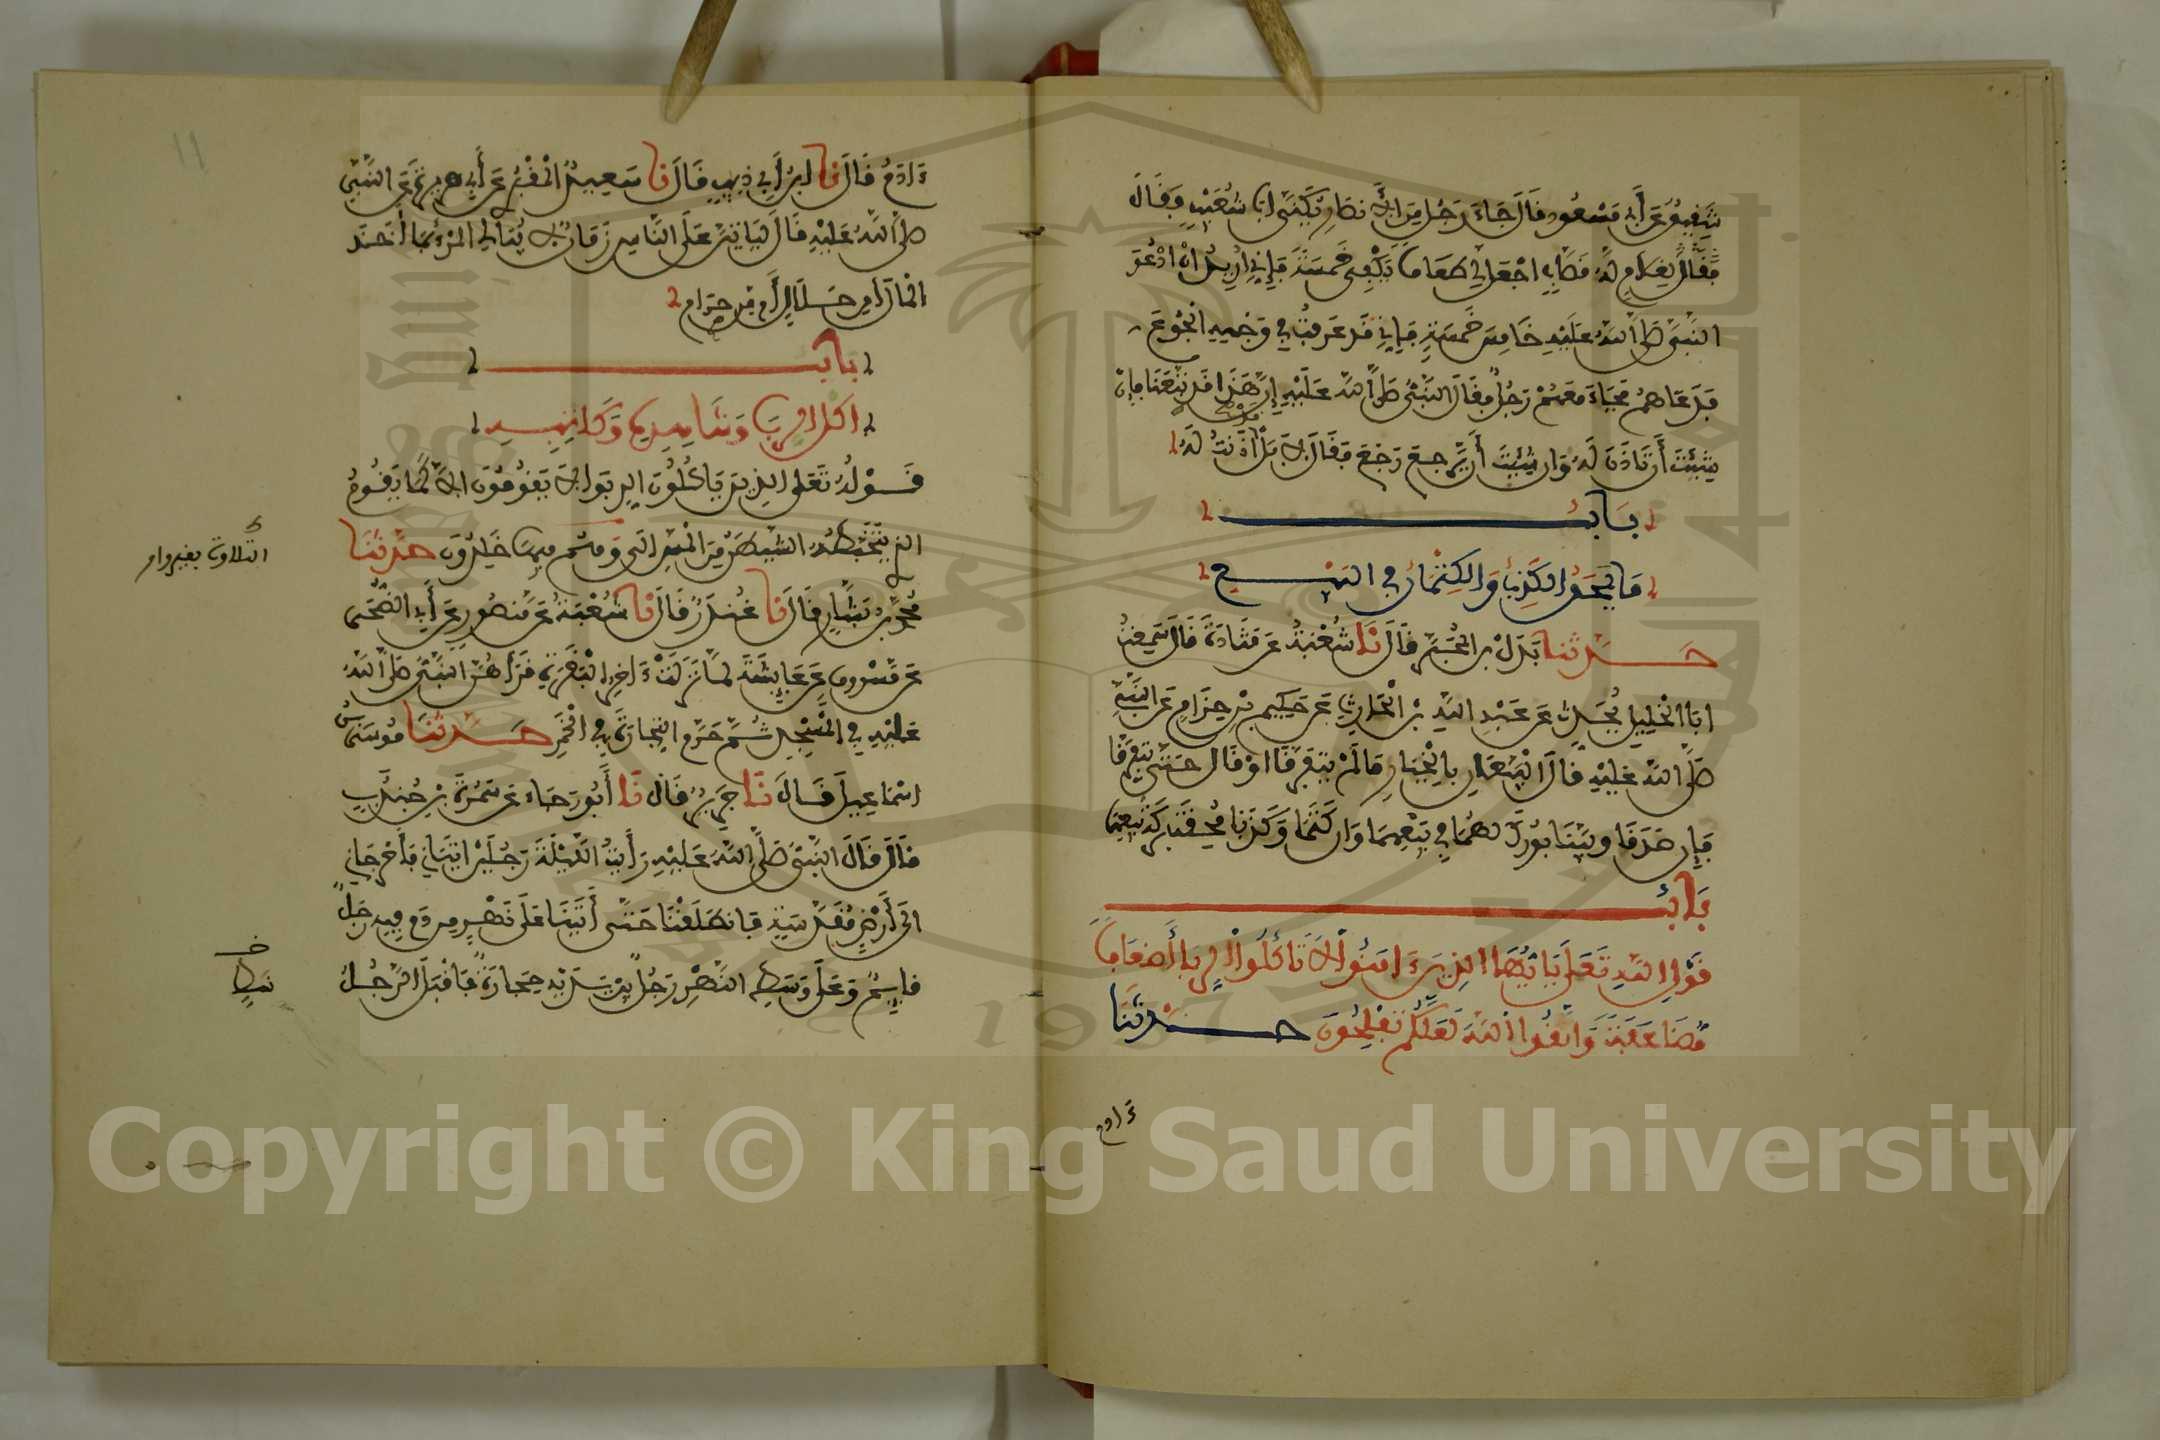 شَفِيقٌ عَنْ أَبِي مَسْعُودٍ قَالَ جَاءَ رَجُلٌ مِنَ الأَنصَارِ يُكَنَّى أَبَا شُعَيْبٍ وَقَالَ
فَقَالَ لِغُلَامٍ لَهُ قَصَّابٍ اجْعَلْ لِي طَعَامًا يَكْفِي خَمْسَةً فَإِنِّي أُرِيدُ أَنْ أَدْعُوَ
النَّبِيَّ صَلَّى اللَّهُ عَلَيْهِ خَامِسَ خَمْسَةٍ فَإِنِّي قَدْ عَرَفْتُ فِي وَجْهِهِ الْجُوعَ
فَدَعَاهُمْ فَجَاءَ مَعَهُمْ رَجُلٌ فَقَالَ النَّبِيُّ صَلَّى اللَّهُ عَلَيْهِ إِنَّ هَذَا قَدْ تَبِعَنَا فَإِنْ
شِئْتَ أَنْ تَاذَنَ لَهُ وَإِنْ شِئْتَ أَنْ يَرْجِعَ رَجَعَ فَقَالَ لَا بَلْ أَذِنْتُ لَهُ
بَابُ
مَا يَمْحَقُ الْكَذِبُ وَالْكِتْمَانُ فِي الْبَيْعِ
حَدَّثَنَا بَدَلُ بْنُ الْمُحَبَّرِ قَالَ نَا شُعْبَةُ عَنْ قَتَادَةَ قَالَ سَمِعْتُ
أَبَا الْخَلِيلِ يُحَدِّثُ عَنْ عَبْدِ اللَّهِ بْنِ الْحَارِثِ عَنْ حَكِيمِ بْنِ حِزَامٍ عَنِ النَّبِيِّ
صَلَّى اللَّهُ عَلَيْهِ قَالَ الْبَيِّعَانِ بِالْخِيَارِ مَا لَمْ يَتَفَرَّقَا أَوْ قَالَ حَتَّى يَتَفَرَّقَا
فَإِنْ صَدَقَا وَبَيَّنَا بُورِكَ لَهُمَا فِي بَيْعِهِمَا وَإِنْ كَتَمَا وَكَذَبَا مُحِقَتْ بَرَكَةُ بَيْعِهِمَا
بَابُ
قَوْلِ اللَّهِ تَعَلَى يَا أَيُّهَا الَّذِينَ ءَامَنُوا لَا تَأْكُلُوا الرِّبَا أَضْعَافًا
مُضَاعَفَةً وَاتَّقُوا اللَّهَ لَعَلَّكُمْ تُفْلِحُونَ حَدَّثَنَا
ءَادم
١١
ءَادَمُ قَالَ نَا ابْنُ أَبِي ذِيبٍ قَالَ نَا سَعِيدٌ الْمَقْبُرِيُّ عَنْ أَبِي هُرَيْرَةَ عَنِ النَّبِيِّ
صَلَّى اللَّهُ عَلَيْهِ قَالَ لَيَاتِيَنَّ عَلَى النَّاسِ زَمَانٌ لَا يُبَالِي الْمَرْءُ بِمَا أَخَذَ
الْمَالَ أَمِنْ حَلَالٍ أَمْ مِنْ حَرَامٍ
بَابُ
آكِلِ الرِّبَا وَشَاهِدِهِ وَكَاتِبِهِ
قَوْلُهُ تَعَلَى الَّذِينَ يَاكُلُونَ الرِّبَوا لَا يَقُومُونَ إِلَّا كَمَا يَقُومُ
الَّذِي يَتَخَبَّطُهُ الشَّيْطَنُ مِنَ الْمَسِّ إِلَى وَهُمْ فِيهَا خَلِدُونَ حَدَّثَنَا
التلاوة بغير واو
مُحَمَّدُ بْنُ بَشَّارٍ قَالَ نَا غُنْدَرٌ قَالَ نَا شُعْبَةُ عَنْ مَنْصُورٍ عَنْ أَبِي الضُّحَى
عَنْ مَسْرُوقٍ عَنْ عَائِشَةَ لَمَّا نَزَلَتْ ءَاخِرُ الْبَقَرَةِ قَرَأَهُنَّ النَّبِيُّ صَلَّى اللَّهُ
عَلَيْهِ فِي الْمَسْجِدِ ثُمَّ حَرَّمَ التِّجَارَةَ فِي الْخَمْرِ حَدَّثَنَا مُوسَى بْنُ
اسْمَاعِيلَ قَالَ نَا جَرِيرٌ قَالَ نَا أَبُو رَجَاءٍ عَنْ سَمُرَةَ بْنِ جُنْدَبٍ
قَالَ قَالَ النَّبِيُّ صَلَّى اللَّهُ عَلَيْهِ رَأَيْتُ اللَّيْلَةَ رَجُلَيْنِ أَتَيَانِي فَأَخْرَجَانِي
إِلَى أَرْضٍ مُقَدَّسَةٍ فَانْطَلَقْنَا حَتَّى أَتَيْنَا عَلَى نَهْرٍ مِنْ دَمٍ فِيهِ رَجُلٌ
قَايِمٌ وَعَلَى وَسَطِ النَّهْرِ رَجُلٌ بَيْنَ يَدَيْهِ حِجَارَةٌ فَأَقْبَلَ الرَّجُلُ
خـ
شط
Copyright © King Saud University
1957